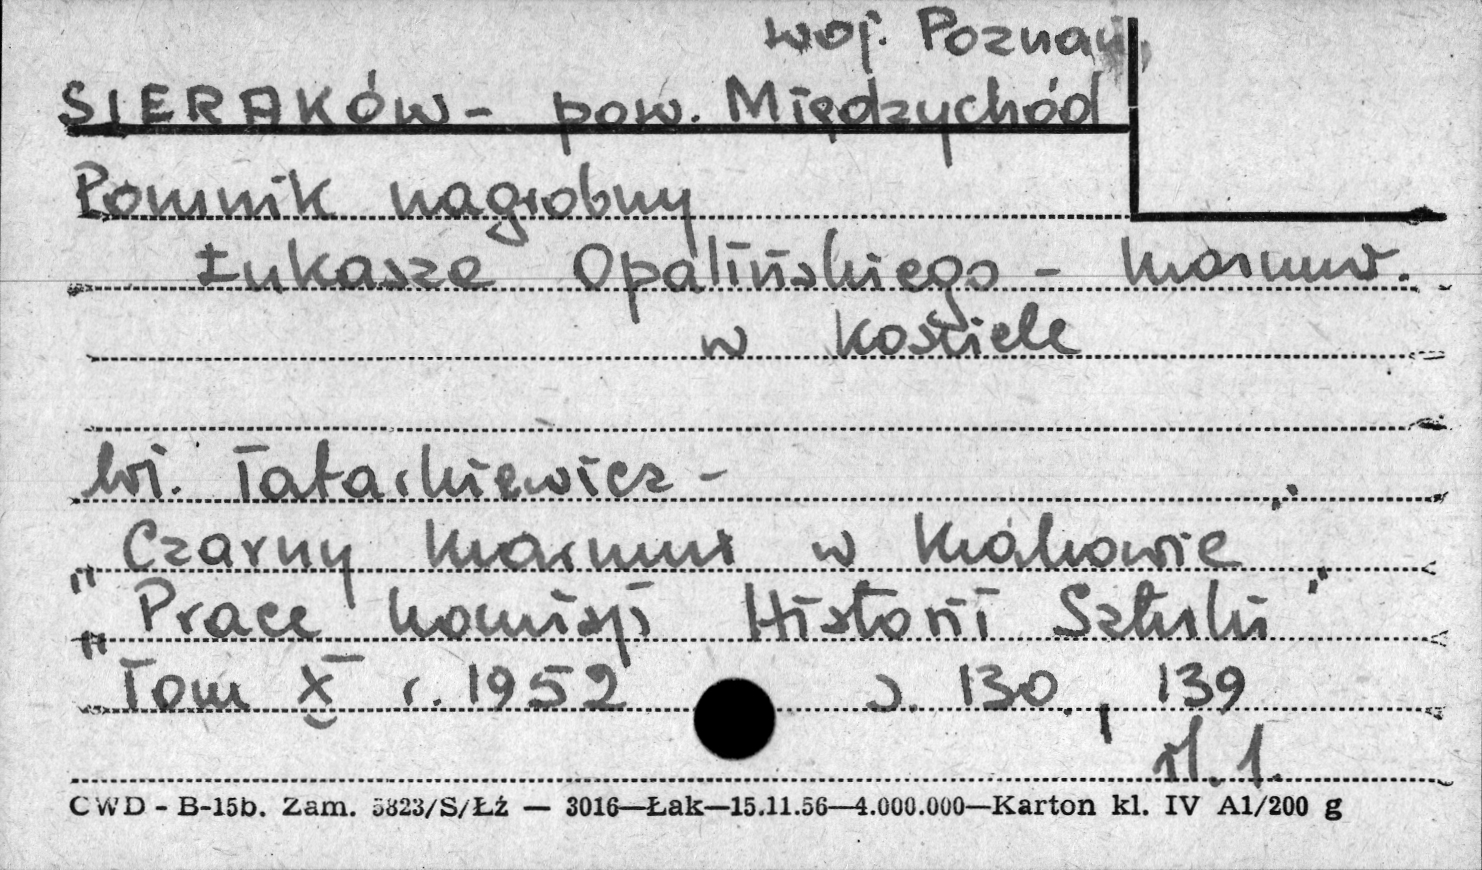 woj. Poznań
SIERAKÓW - pow. Międzychód
Pomnik nagrobny
Łukasza Opalińskiego - marmur.
w kościele
Wł. Tatarkiewicz -
"Czarny marmur w Krakowie"
"Prace Komisji Historii Sztuki"
Tom X r. 1952 s. 130, 139
il. 1.
CWD - B-15b. Zam. 5823/S/Łź — 3016—Łak—15.11.56—4.000.000—Karton kl. IV A1/200 g